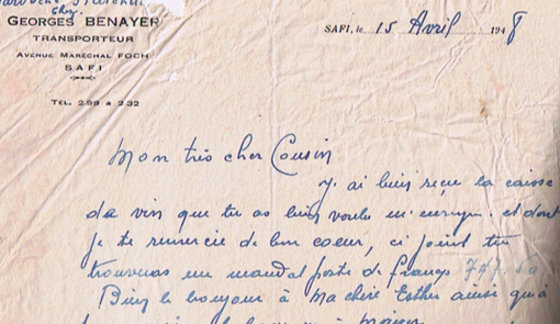 Chez
GEORGES BENAYER
TRANSPORTEUR
AVENUE MARÉCHAL FOCH
SAFI
TÉL. 2.99 & 2.32
SAFI, le 15 Avril 1948
Mon très cher Cousin
J'ai bien reçu la caisse
de vin que tu as bien voulu m'envoyer et dont
je te remercie de bon coeur, ci joint tu
trouveras un mandat poste de francs 747.50
Bien le bonjour à ma chère Esther ainsi qu'à